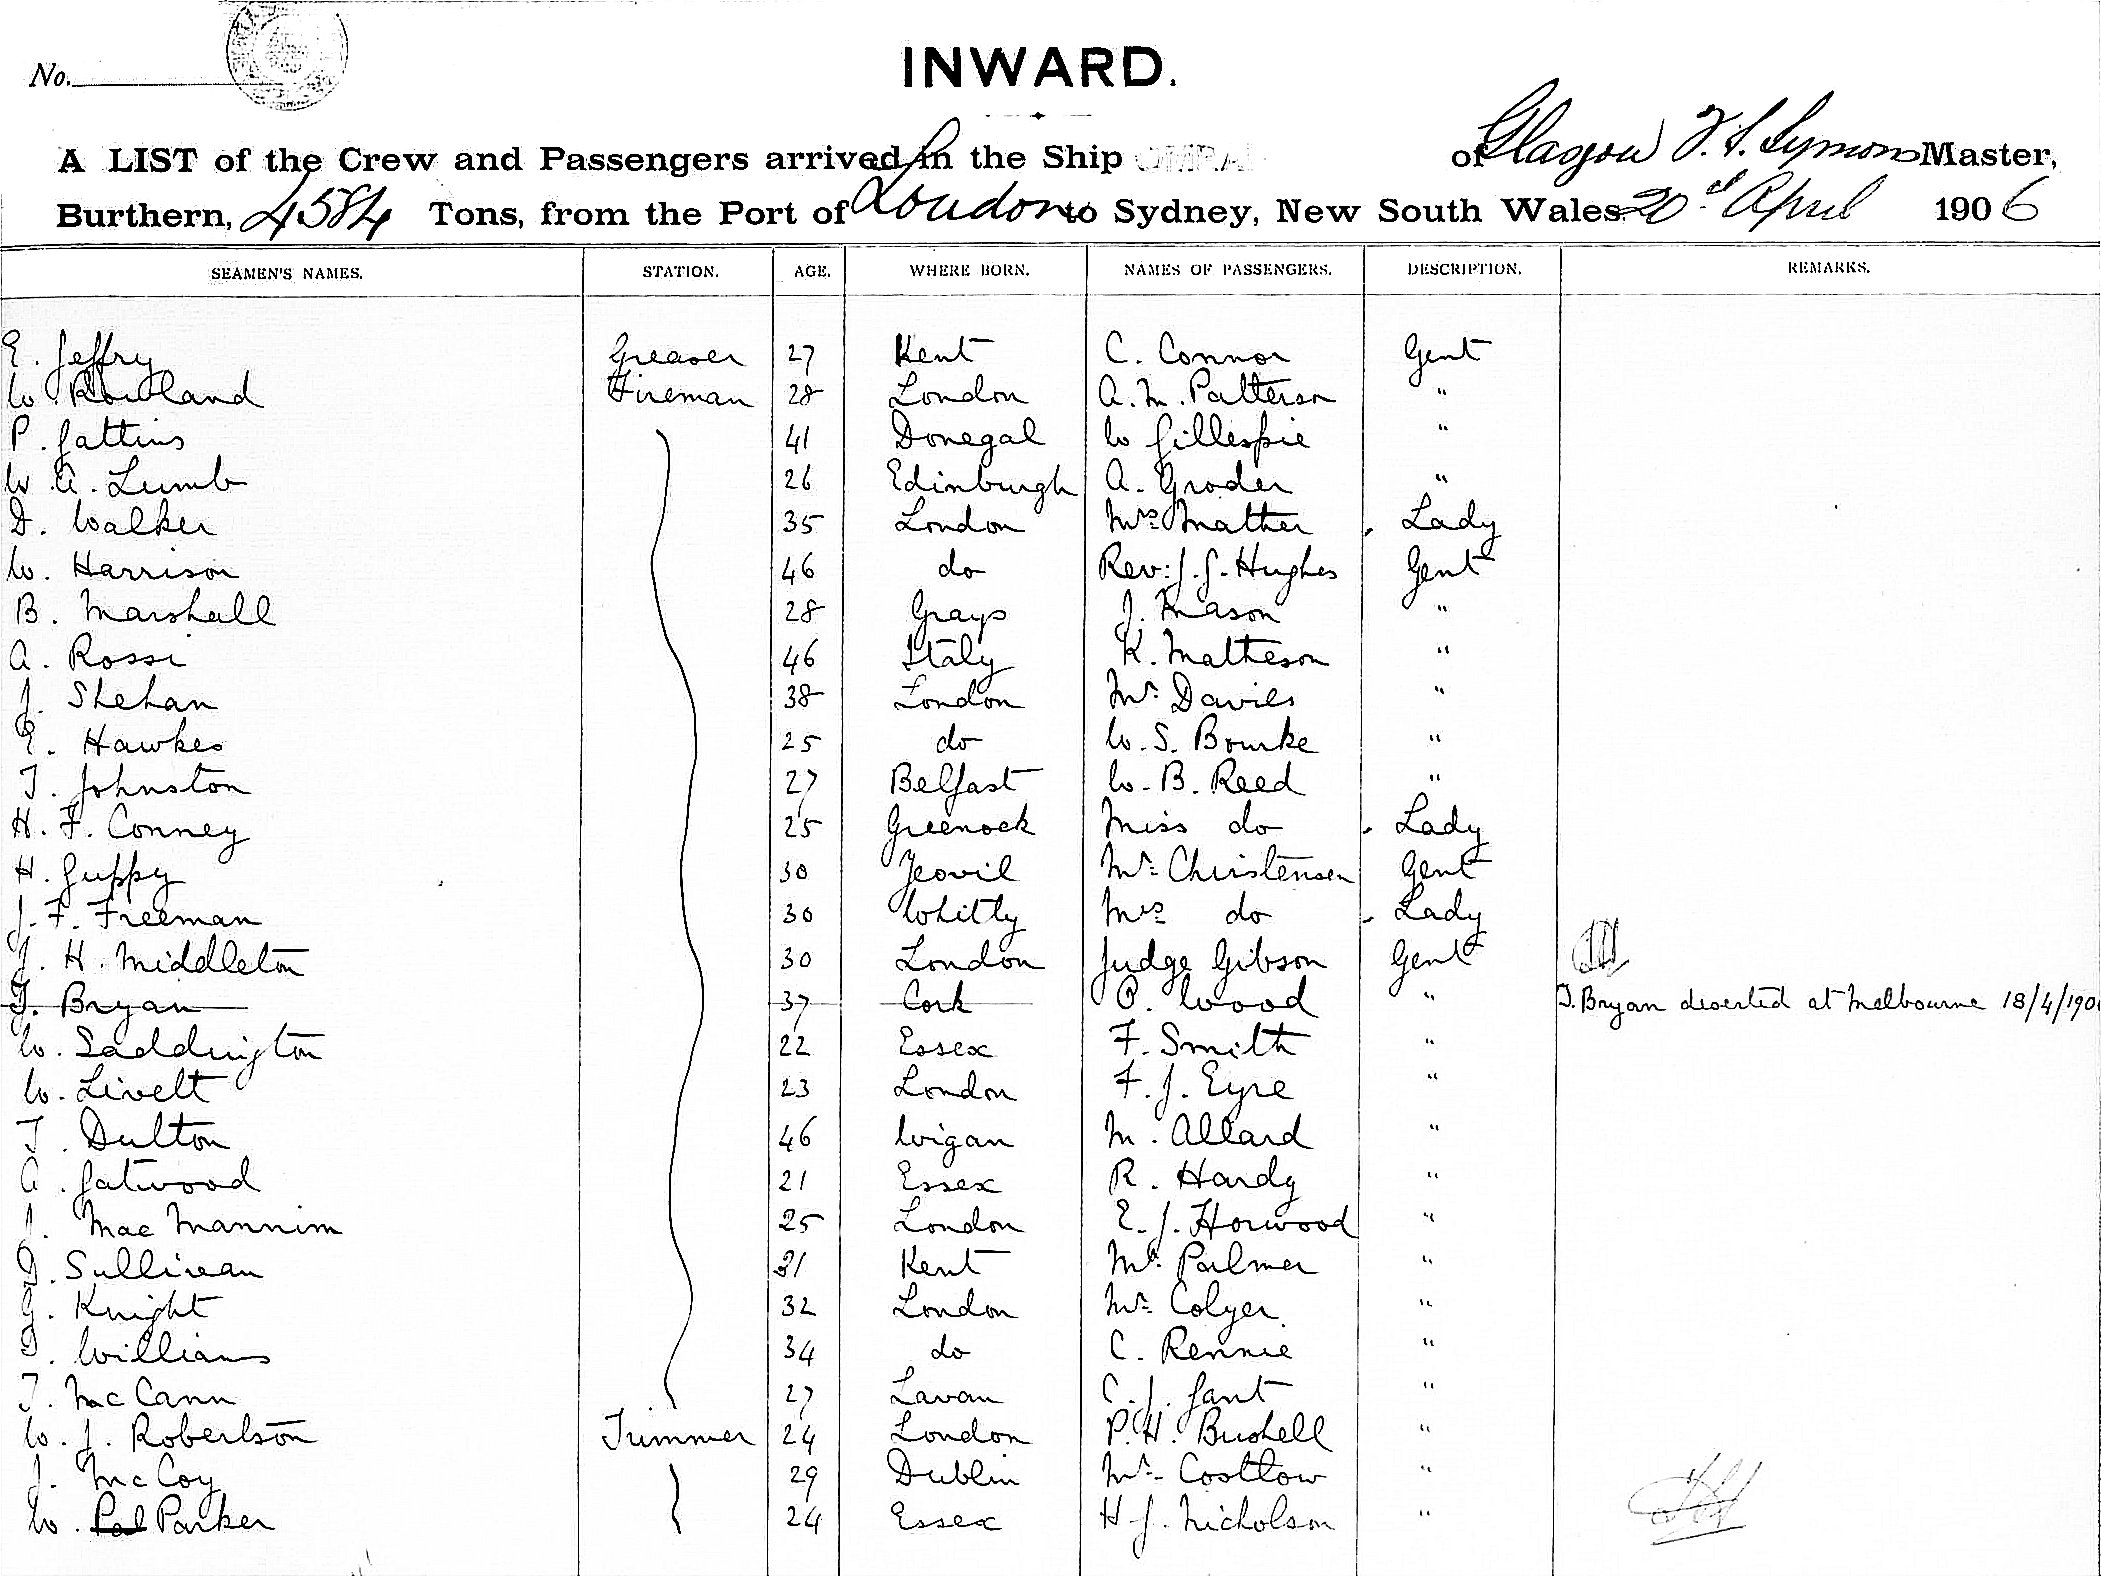 No.
INWARD.
A LIST of the Crew and Passengers arrived in the Ship OMRAH of Glasgow F. S. Symons Master,
Burthern, 4584 Tons, from the Port of London to Sydney, New South Wales 20th April 1906
SEAMEN'S NAMES. STATION. AGE. WHERE BORN. NAMES OF PASSENGERS. DESCRIPTION. REMARKS.
E. Jeffry Greaser 27 Kent C. Connor Gent
W Rowland Fireman 28 London A. M. Patterson "
P. Gattins 41 Donegal W Gillespie "
W. A. Lumb 26 Edinburgh A. Groder "
D. Walker 35 London Mrs Mather Lady
W. Harrison 46 do Rev: J. G. Hughes Gent
B. Marshall 28 Grays J. Mason "
A. Rossi 46 Italy K. Matheson "
J. Shehan 38 London Mr Davies "
E. Hawkes 25 do W. S. Bourke "
T. Johnston 27 Belfast W. B. Reed "
H. F. Conney 25 Greenock Miss do Lady
H. Guppy 30 Yeovil Mr Christensen Gent
J. F. Freeman 30 Whitty Mrs do Lady
J. H. Middleton 30 London Judge Gibson Gent
T. Bryan 37 Cork P. Wood " T. Bryan deserted at Melbourne 18/4/190
W. Saddington 22 Essex F. Smith "
W. Livett 23 London F. J. Eyre "
T. Dutton 46 Wigan M. Allard "
A. Gatwood 21 Essex R. Hardy "
J. Mac Mannim 25 London E. J. Horwood "
D. Sullivean 31 Kent Mr Palmer "
G. Knight 32 London Mr Colyer "
T. Williams 34 do C. Rennie "
T. McCann 27 Lavan C. J. Gant "
W. J. Robertson Trimmer 24 London P. H. Bushell "
J. McCoy 29 Dublin Mr Costlow "
W. Pal Parker 24 Essex H J. Nicholson "